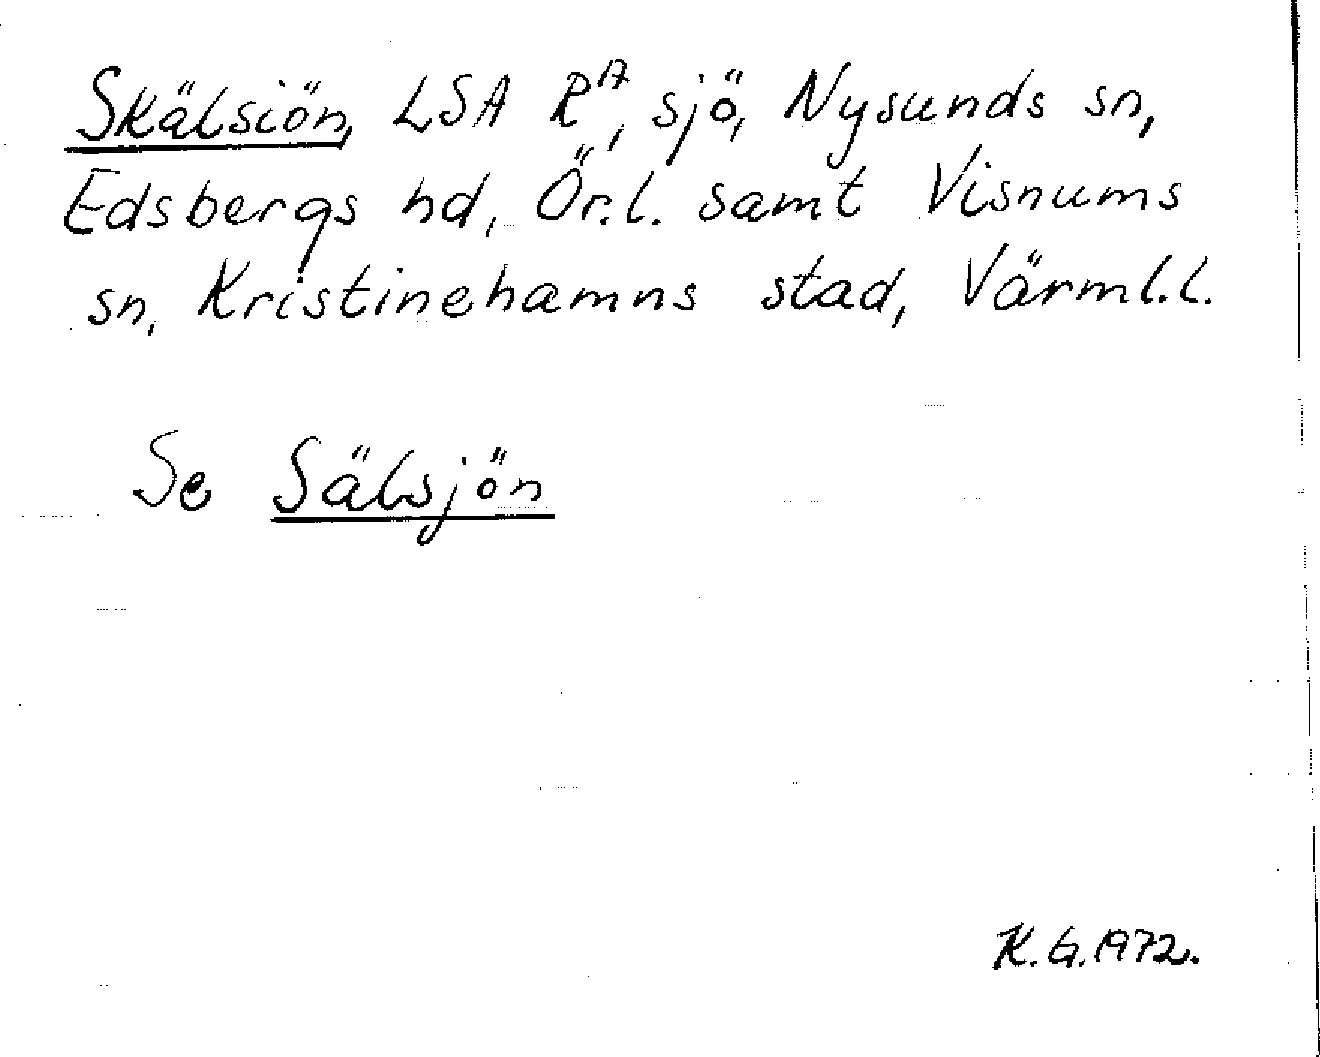 Skälsiön, LSA Rᴬ, sjö, Nysunds sn,
Edsbergs hd, Ör.l. samt Visnums
sn, Kristinehamns stad, Värml.l.
Se Sälsjön
K.G.1972.